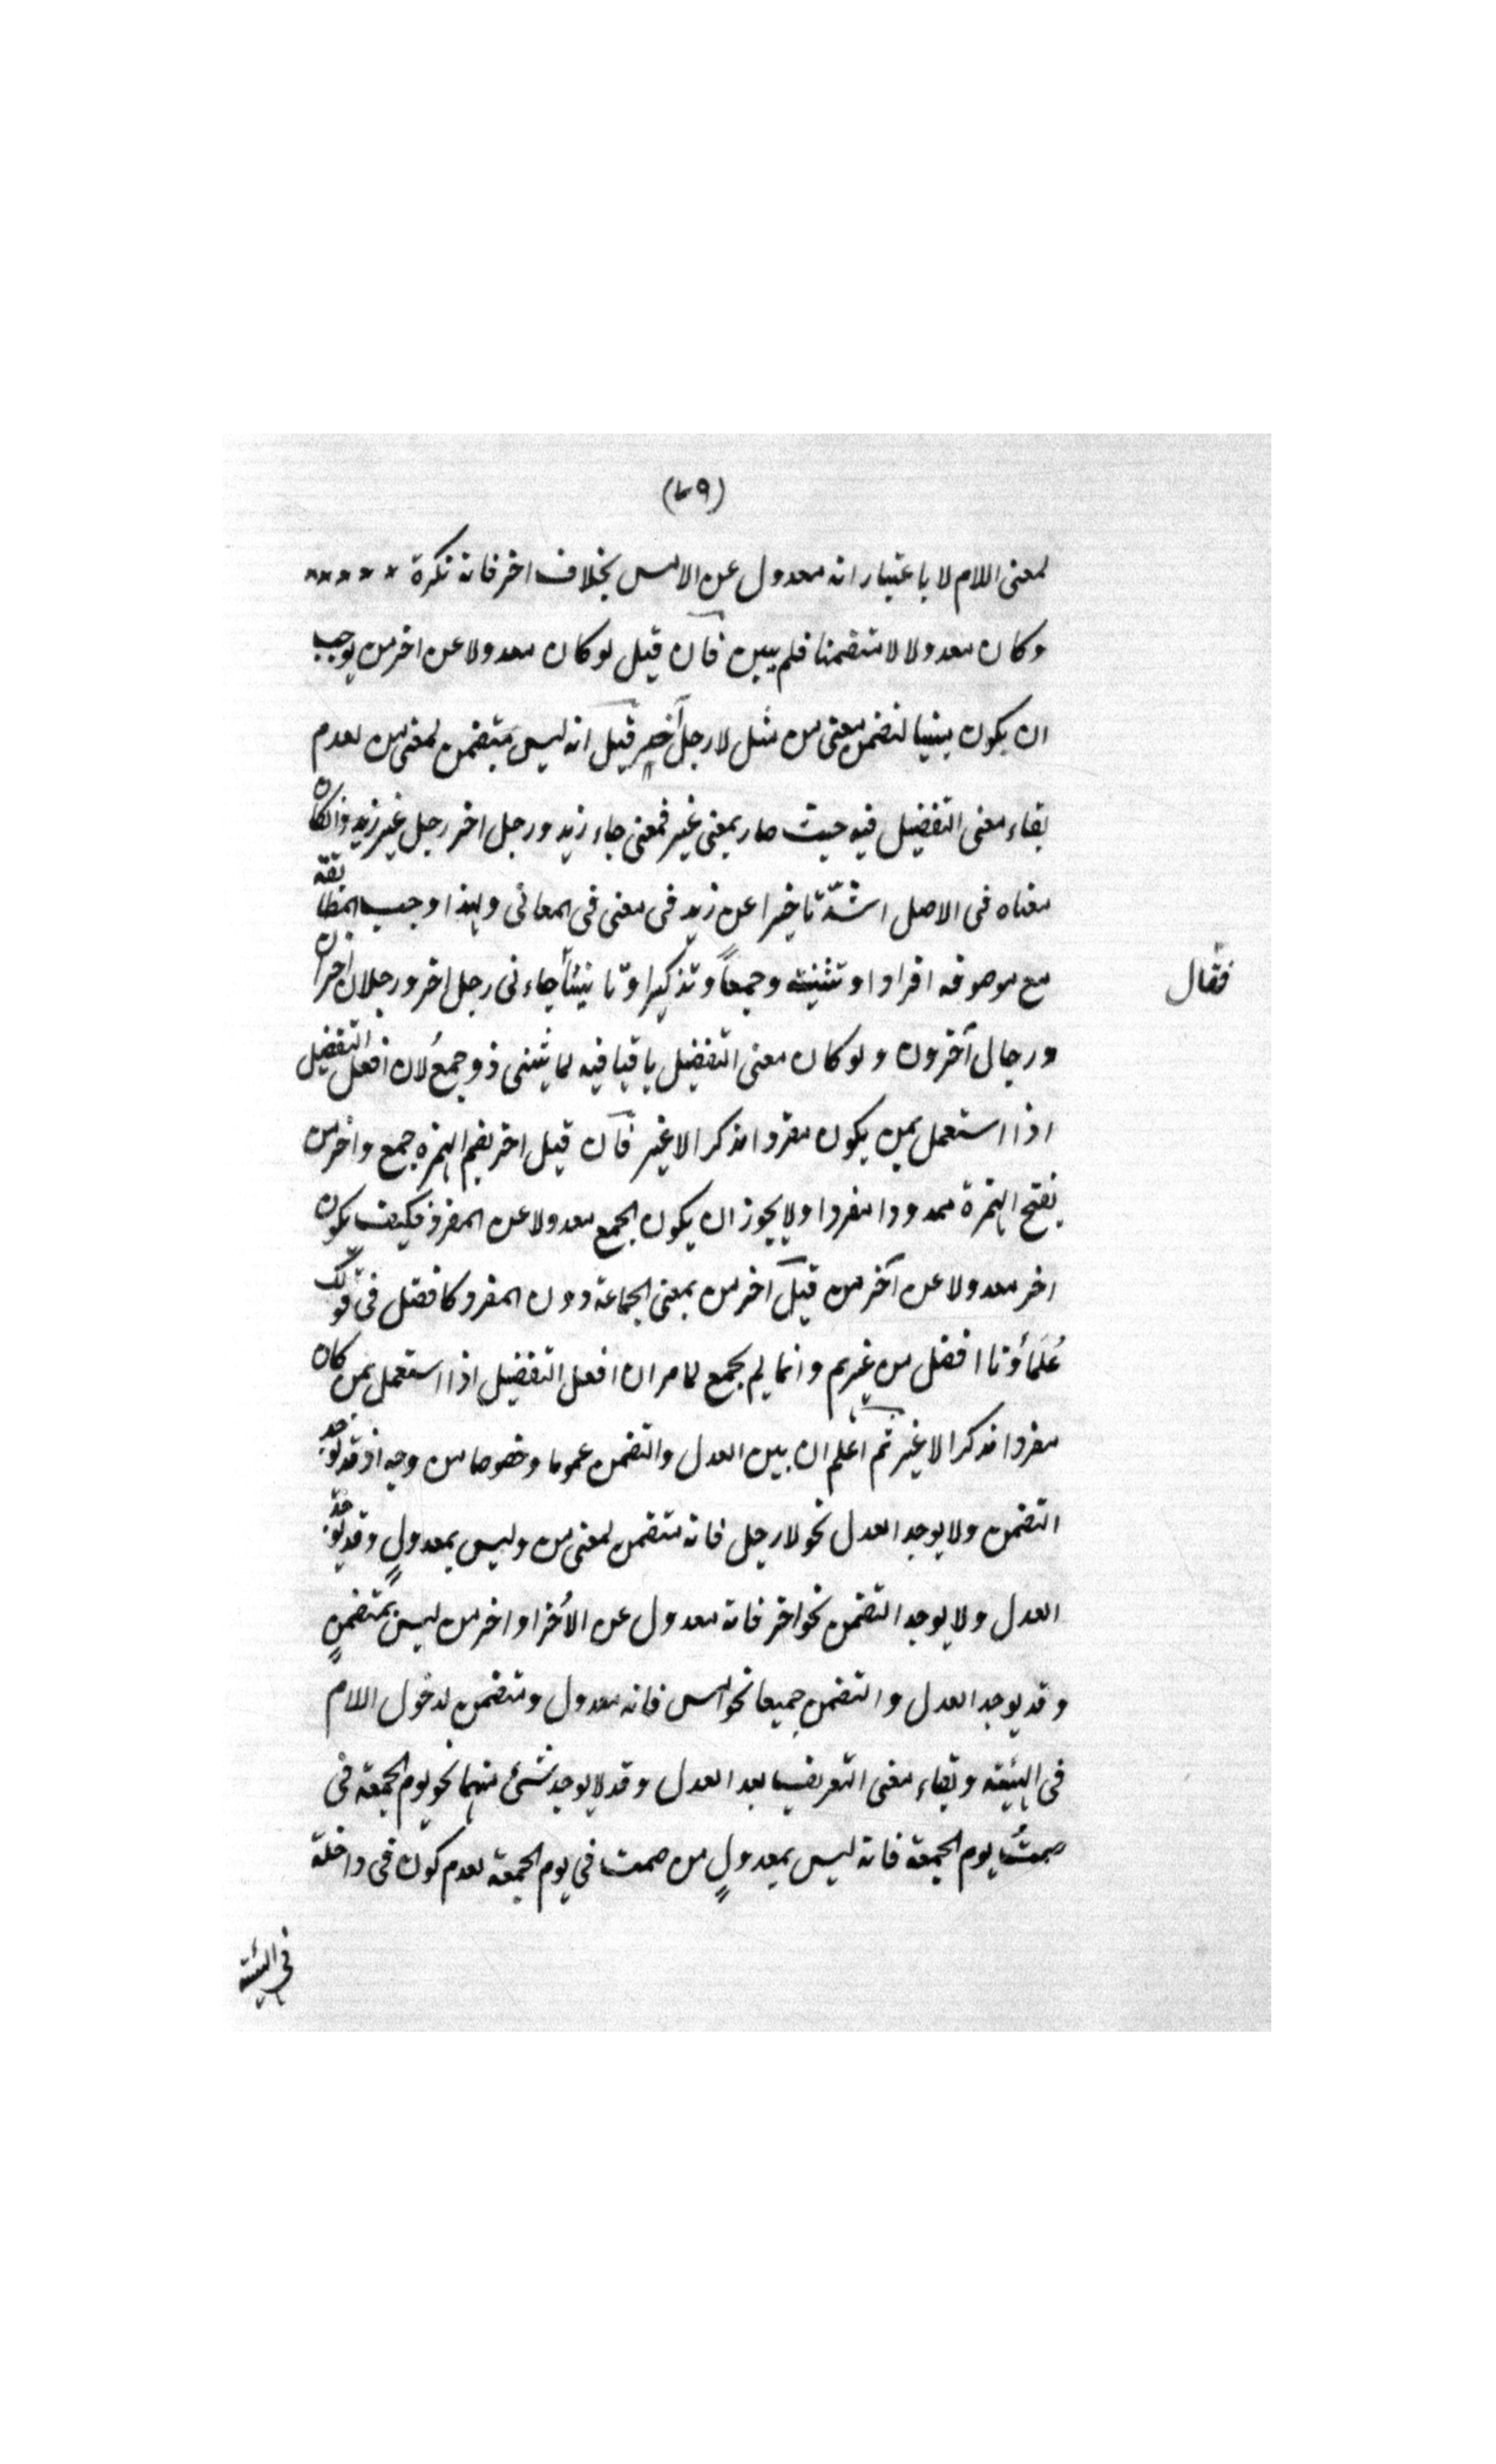 (٧٩)
لمعنى اللام لا باعتبار انه معدول عن الامس بخلاف اخر فانه نكرة
وكان معدولا لا متضمنا فلم يبن فان قيل لو كان معدولا عن اخر من يوجب
ان يكون مبنيا لتضمن معنى من مثل لا رجل اخر قيل انه ليس بمتضمن لمعنى من لعدم
بقاء معنى التفضيل فيه حيث صار بمعنى غير فمعنى جاء زيد ورجل اخر رجل غير زيد وانكان
معناه فى الاصل اشدّ تاخيرا عن زيد فى معنى فى المعانى ولهذا وجب المطابقة
مع موصوفه افرادا وتثنية وجمعاً وتذكيرا وتانيثاً جاءنى رجل اخر ورجلان آخران
فقال
ورجال آخرون ولو كان معنى التفضيل باقيا فيه لما يثنى ذو جمعُ لان افعل التفضيل
اذا استعمل بمن يكون مفردا مذكرا لا غير فان قيل اخر بضم الهمزه جمع واخر من
بفتح الهمزة ممدودا مفردا ولا يجوز ان يكون الجمع معدولا عن المفرد فكيف يكون
اخر معدولا عن آخر من قيل آخر من بمعنى الجماعة دون المفرد كافضل فى قولك
عُلَمَاؤنا افضل من غيرهم وانما لم يجمع لما مر ان افعل التفضيل اذا استعمل بمن كان
مفردا مذكرا لا غير ثم اعلم ان بين العدل والتضمن عموما وخصوصا من وجه اذ قد يوجد
التضمن ولا يوجد العدل نحو لا رجل فانه متضمن لمعنى من وليس بمعدولٍ وقد يوجد
العدل ولا يوجد التضمن نحو اخر فانه معدول عن الأخر او اخر من ليس بمتضمنٍ
وقد يوجد العدل والتضمن جميعا نحو امس فانه معدول ومتضمن لدخول اللام
فى الهيئة وبقاء معنى التعريف بعد العدل وقد لا يوجد شئ منهما نحو يوم الجمعة فى
صمتُ يوم الجمعة فانه ليس بمعدولٍ من صمت في يوم الجمعة لعدم كون فى داخلة
فى الهيئة